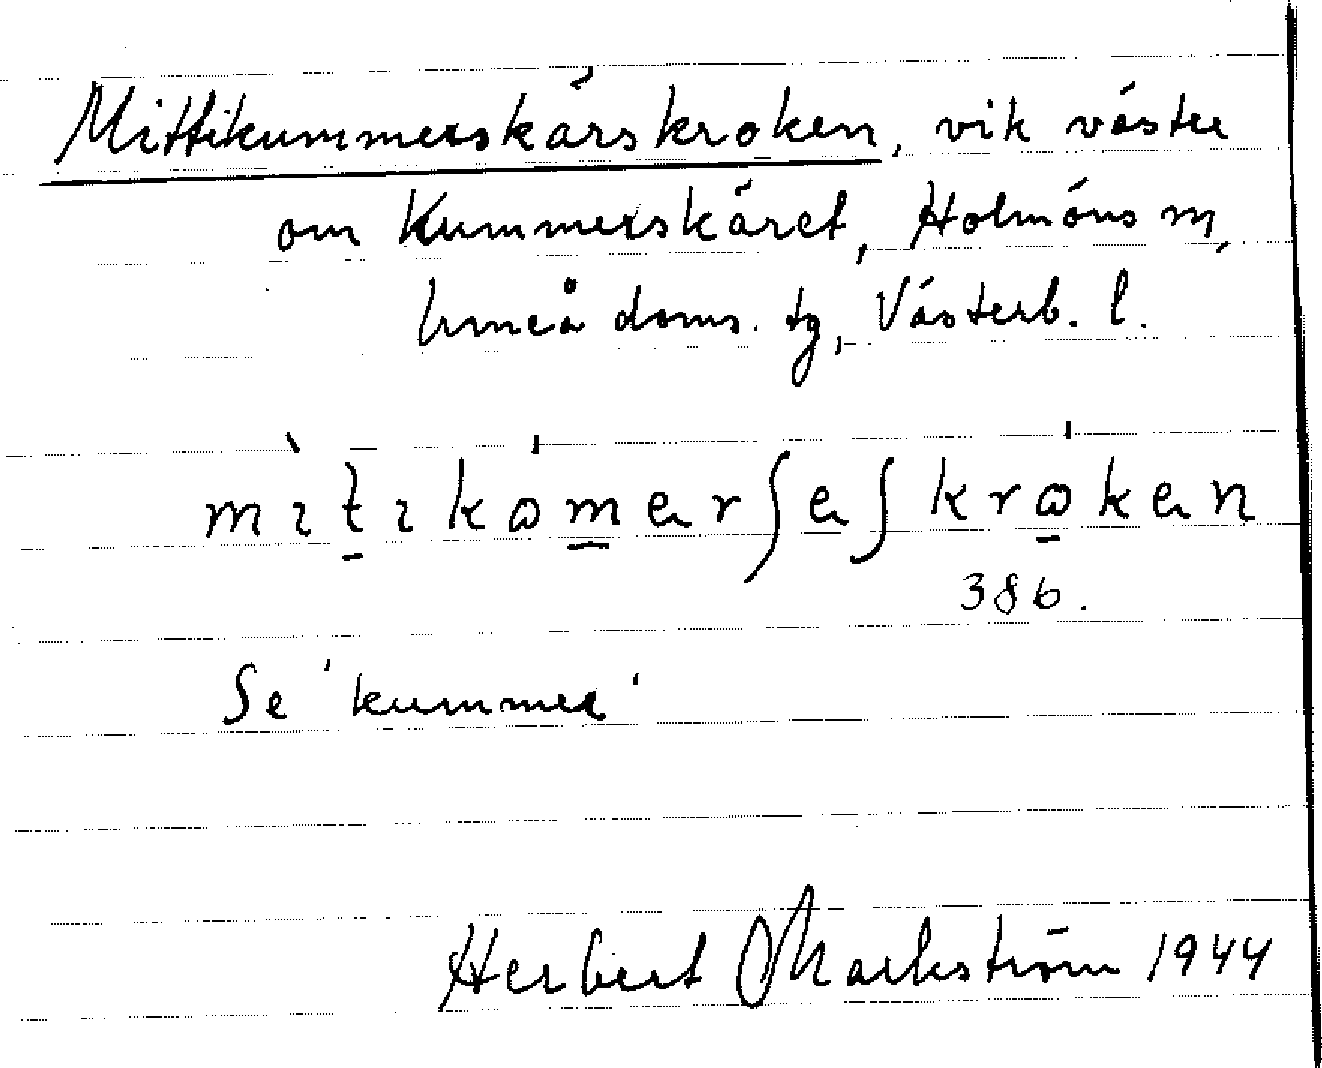 Mittikummerskärskroken, vik väster
om Kummerskäret, Holmöns sn,
Umeå doms. tg, Västerb. l.
mɪtɪkɷmərʃeʃkrɷkən
386.
Se 'kummer'
Herbert Markström 1944